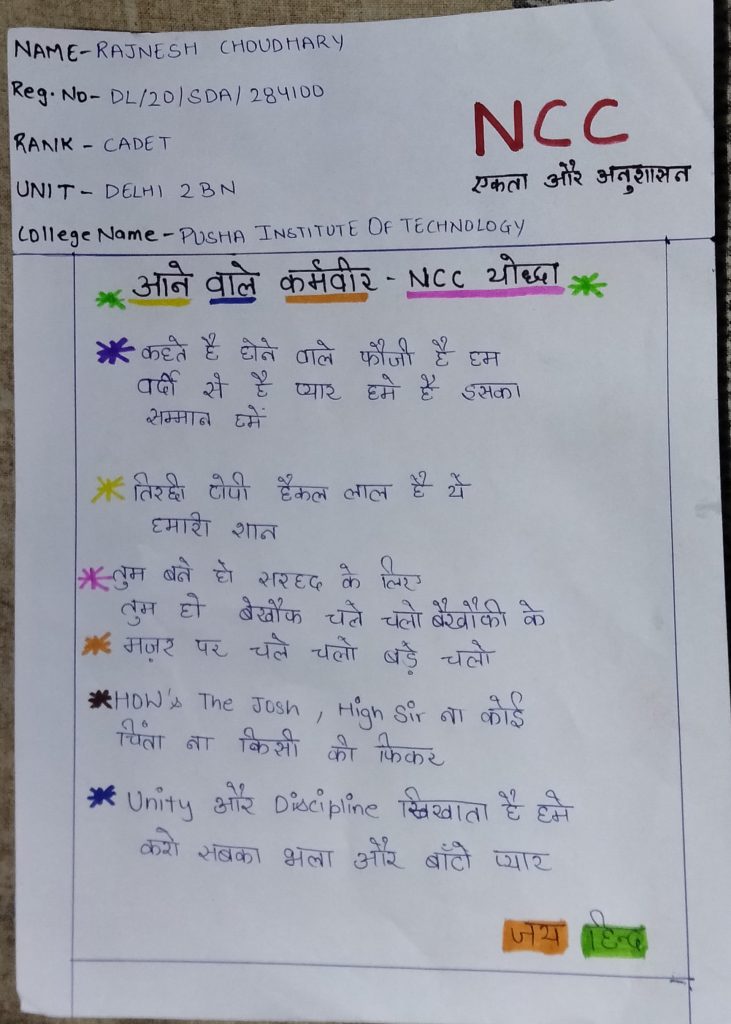 NAME- RAJNESH CHOUDHARY
Reg. No- DL/20/SDA/284100
RANK - CADET
UNIT - DELHI 2 BN
College Name - PUSHA INSTITUTE OF TECHNOLOGY
NCC
एकता और अनुशासन
आने वाले कर्मवीर - NCC योध्दा
कहते है होने वाले फौजी है हम
वर्दी से है प्यार हमे है इसका
सम्मान हमें
तिरछी टोपी हैकल लाल है ये
हमारी शान
तुम बने हो सरहद के लिए
तुम हो बेखौफ चले चलो बैखौफी के
मज़र पर चले चलो बड़े चलो
HOW's The Josh , High Sir ना कोई
चिंता ना किसी की फिकर
Unity और Discipline सिखाता है हमे
करो सबका भला और बाँटो प्यार
जय हिन्द